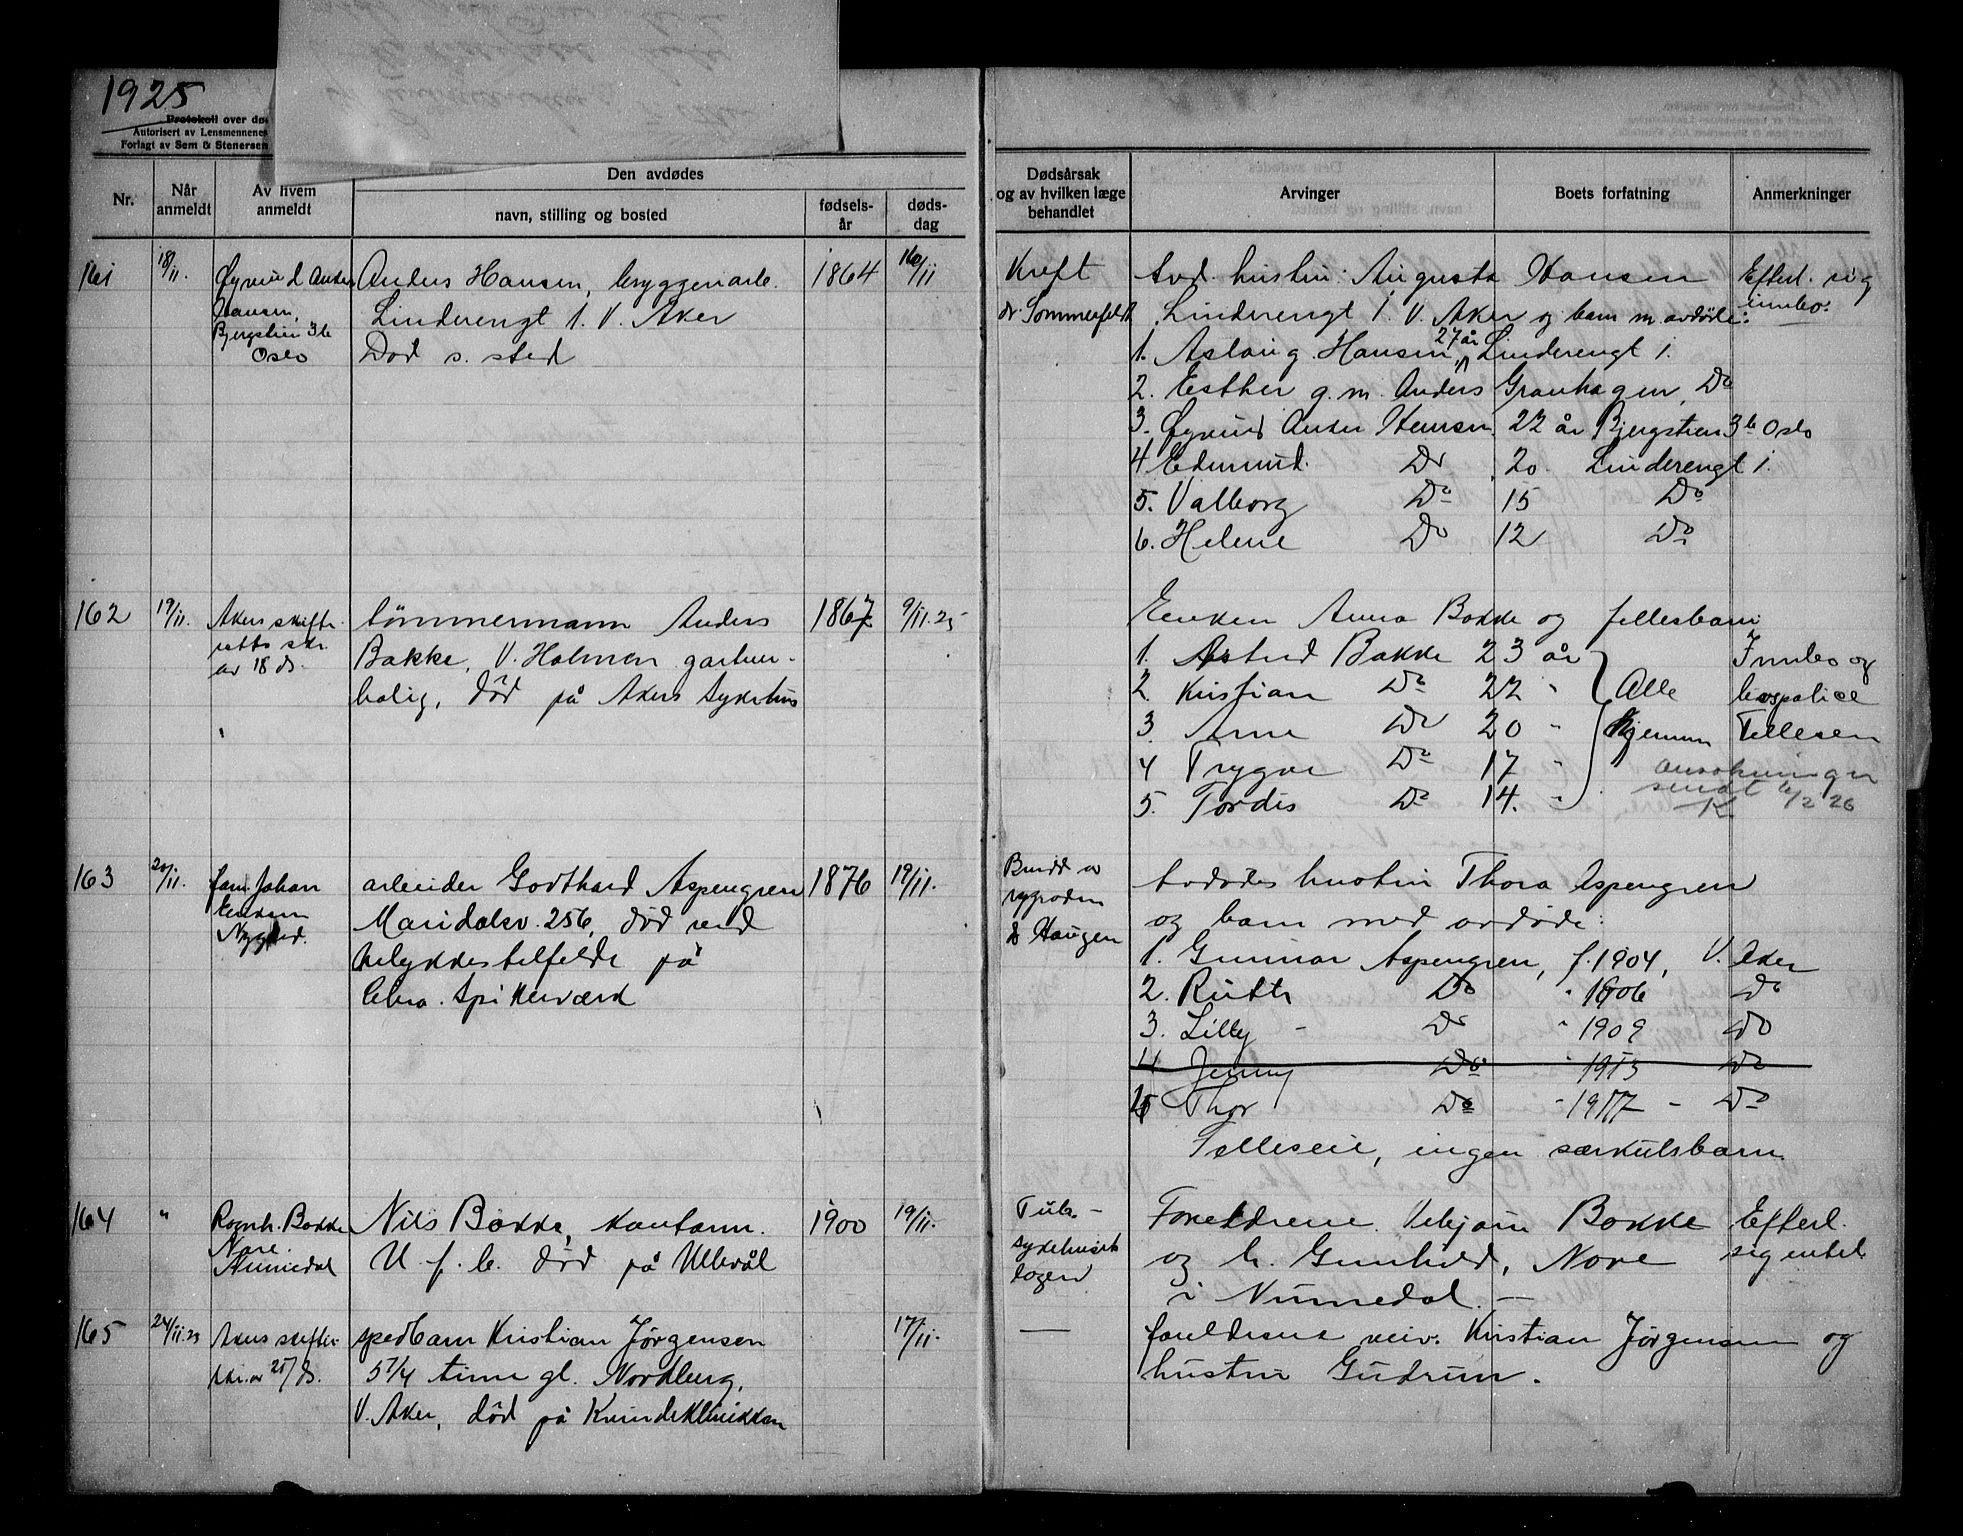 1925
Protokoll over dø
Autorisert av Lensmennenes
Forlagt av Sem & Stenersen
Nr.
Når anmeldt
Av hvem anmeldt
Den avdødes
navn, stilling og bosted
fødsels-år
døds-dag
Dødsårsak og av hvilken læge behandlet
Arvinger
Boets forfatning
Anmerkninger
161 18/11. Øyvind Anders Anders Hansen, bryggeriarb. 1864 16/11 Kreft Avd. hustru: Augusta Hansen Efterl. sig
Hansen, Linderengt 1. V. Aker dr. Sommerfeldt Linderengt 1. V. Aker og barn m. avdøde: innbo.
Bjergstien 3b
Oslo Død s. sted 1. Aslaug Hansen, 27 år Linderengt 1.
2. Esther g. m. Anders Granhagen, Do
3. Øyvind Anders Hansen, 22 år Bjergstien 3b Oslo
4 Edmund. Do 20. Linderengt 1.
5. Valborg Do 15 Do
6. Helene Do 12 Do
162 19/11. Akers skifte- tømmermann Anders 1867 9/11.25 Enken Anna Bakke og fellesbarn
retts skr. Bakke, V. Holmen gartner- 1. Astrid Bakke 23 år Innbo og
av 18 ds. bolig, død på Akers sykehus 2. Kristian Do 22 " Alle livspolice
3. Arne Do 20 " hjemme Felleseie
4 Trygve Do 17 " ansøkningen
5. Tordis Do 14. " sendt 6/2 26
K.
163 20/11. fam. Johan arbeider Godthard Aspengren 1876 19/11. Brudd av avdødes hustru Thora Aspengren
Nygård. Maridalsv. 256, død ved ryggraden og barn med avdøde:
ulykkestilfelde på dr Haugen 1. Gunnar Aspengren, f. 1904, V. Aker
Chra. Spikerværk 2. Ruth Do " 1906 Do
3. Lilly - Do " 1909 Do
4 Jenny Do " 1913 Do
5 Thor Do " 1917 - Do
Felleseie, ingen særkulsbarn
164 " Ragnh. Bakke Nils Bakke, kontorm. 1900 19/11. Tub. - Foreldrene Vebjørn Bakke Efterl.
Nore U. f. b. død på Ullevål sykehuset og h. Gunhild, Nore sig intet
Numedal i Numedal. -
165 24/11.25 Akers skifte- spedbarn Kristian Jørgensen 17/11. — foreldrene veiv. Kristian Jørgensen og
skr. av 21/ ds. 5 1/4 time gl. Nordberg, hustru Gudrun.
V. Aker, død på Kvindeklinikken